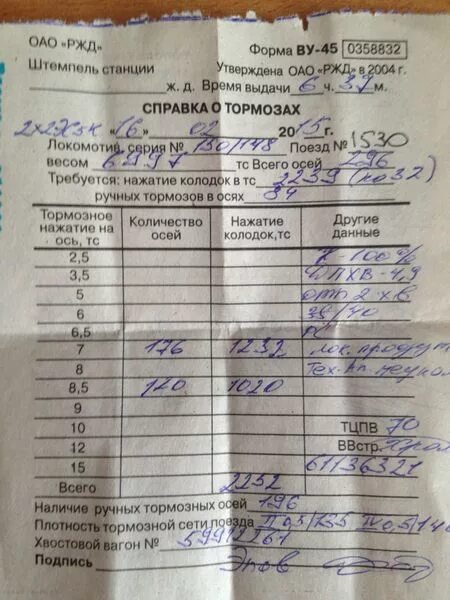 ОАО «РЖД» Форма ВУ-45 0358832
Штемпель станции Утверждена ОАО «РЖД» в 2004 г.
ж. д. Время выдачи 6 ч. 37 м.
СПРАВКА О ТОРМОЗАХ
«16» 02 2015 г.
Локомотив, серия № 130/148 Поезд № 1530
весом 6997 тс Всего осей 296
Требуется: нажатие колодок в тс 2239 (по 32)
ручных тормозов в осях 84
Тормозное нажатие на ось, тс Количество осей Нажатие колодок, тс Другие данные
2,5 К-100%
3,5 ДПХВ-4,9
5 2 х в
6
6,5
7 176 1232 лок.
8
8,5 120 1020
9
10 ТЦПВ 70
12 ВВстр.
15 61136321
Всего 2252
Наличие ручных тормозных осей 196
Плотность тормозной сети поезда
Хвостовой вагон №
Подпись